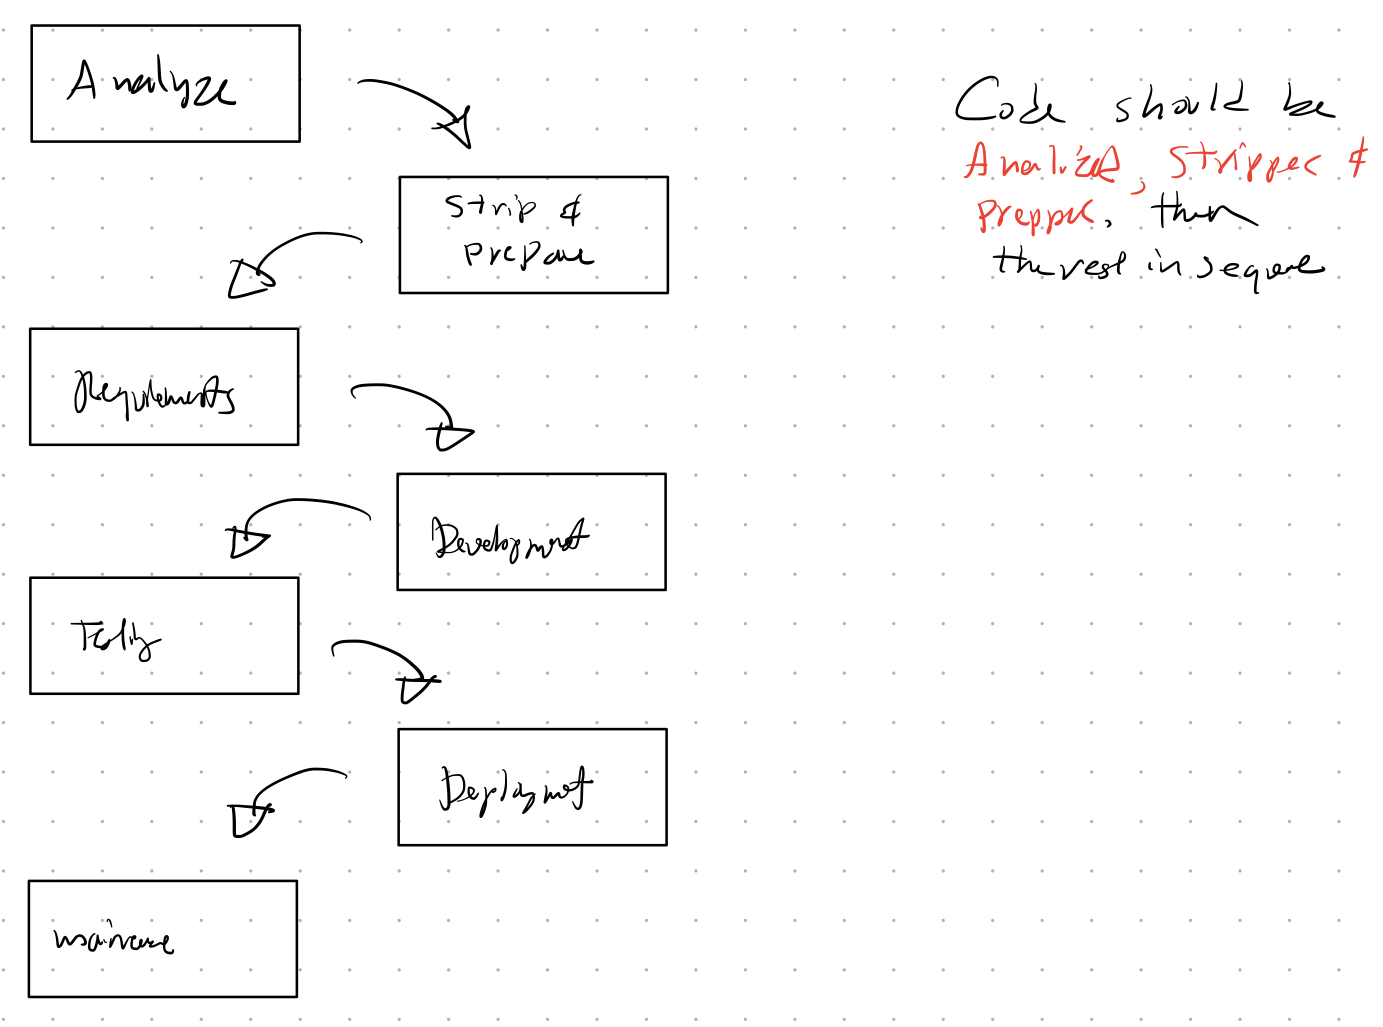 Analyze
Strip &
Prepare
Requirements
Development
Testing
Deployment
Code should be
Analized, Stripped &
Prepped, then
the rest in sequence